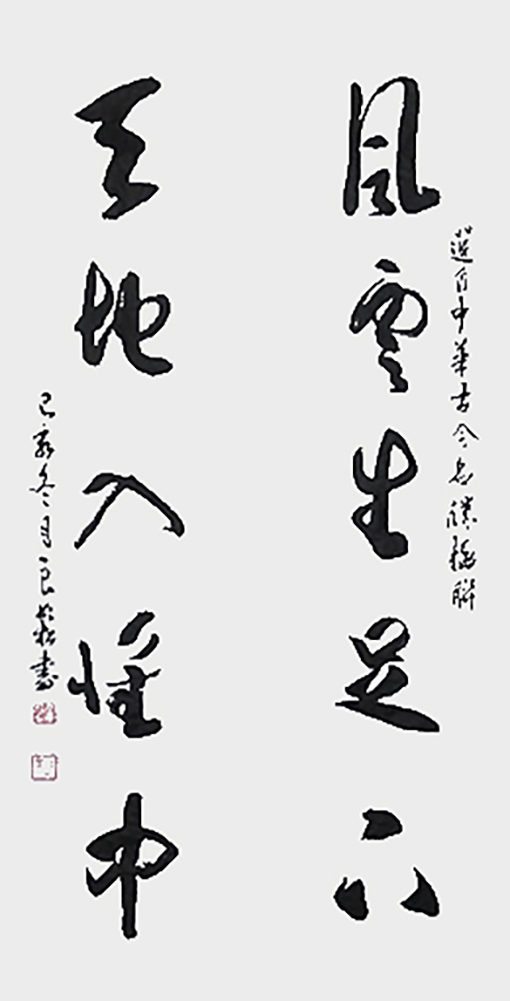 選自中華古今名勝楹聯
風雲生足下
天地入懷中
己亥冬月良書